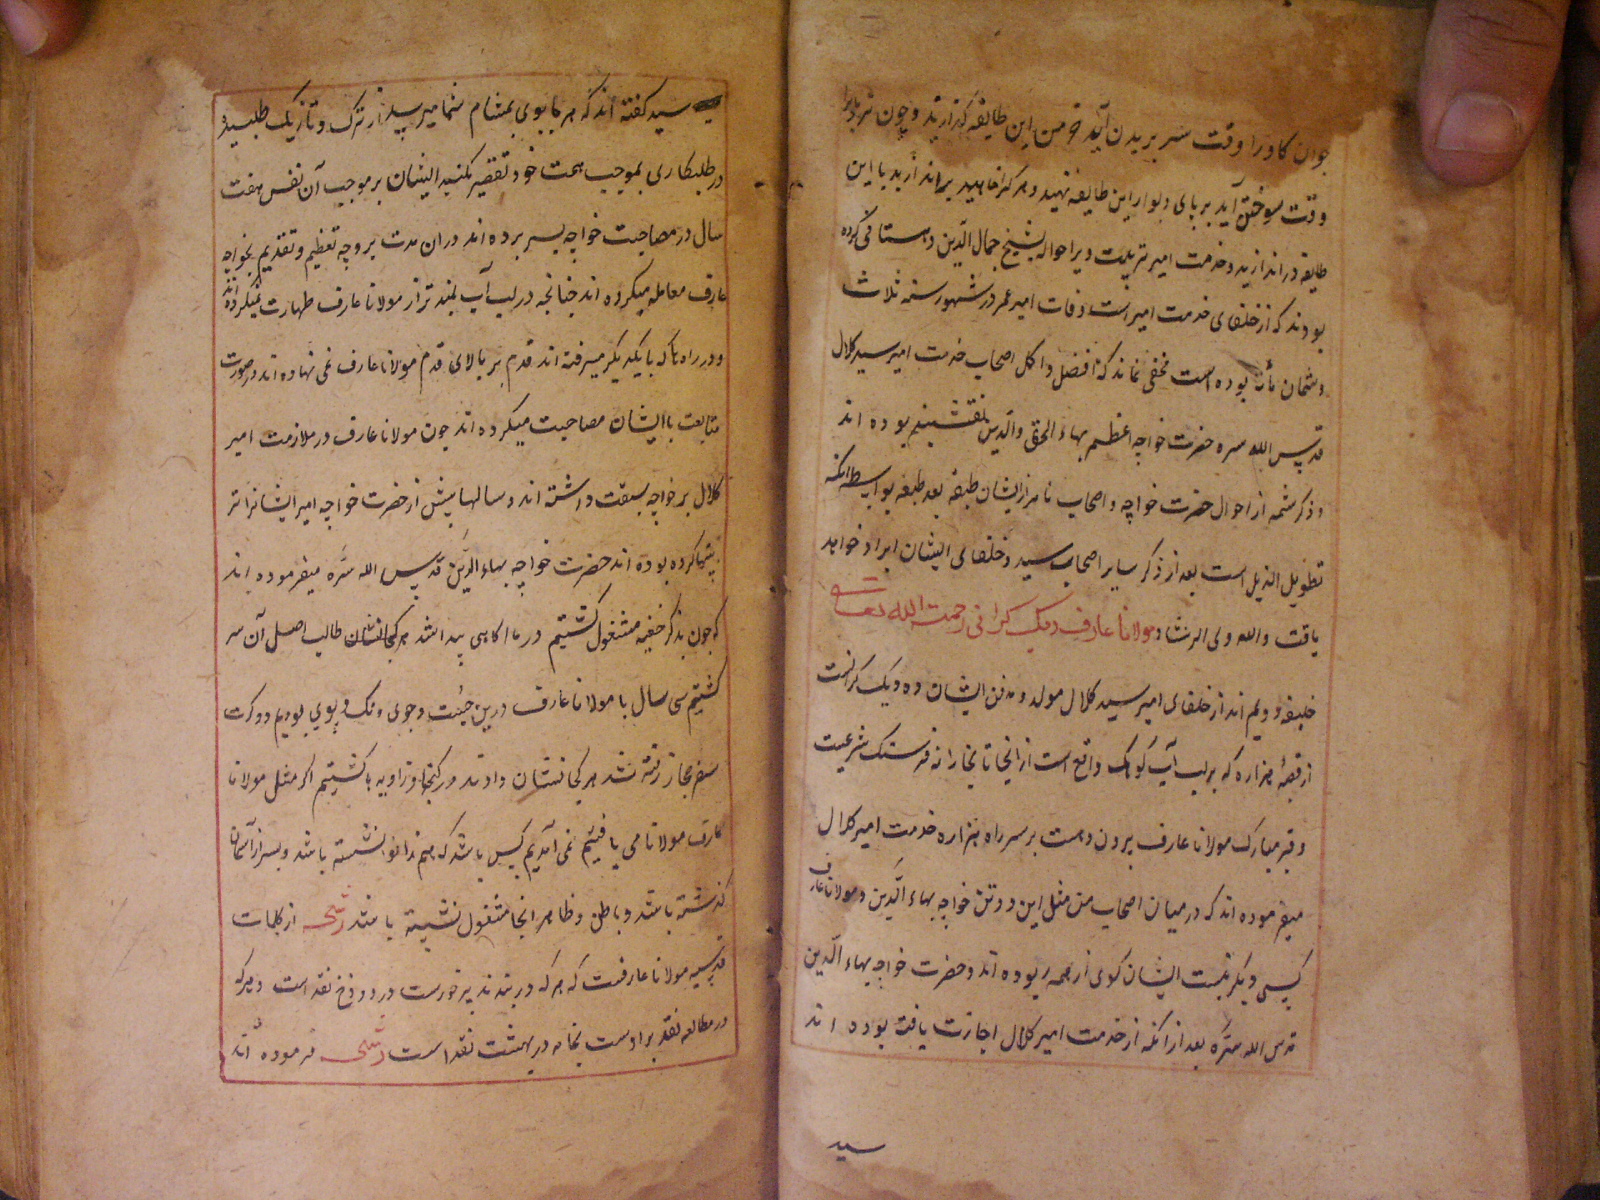 جوان کاو را وقت سر بریدن آید خرمن این طایفه گذارید و چون شما را
وقت سوختن آید بر پای دیوار این طایفه نهید و هرکرا خواهید براندازید با این
طایفه دراندازید و خدمت امیر تربیت ویرا حواله بشیخ جمال الدین دهستانی کرده
بودند که از خلفای خدمت امیر است وفات امیر عمر در شهور سنه ثلاث
و ثمان مأنه بوده است مخفی نماند که افضل و اکمل اصحاب خدمت امیر سید کلال
قدس الله سره حضرت خواجه اعظم بهاء الحق والدین نقشبند بوده اند
و ذکر شمه از احوال حضرت خواجه و اصحاب نامدار ایشان طبقه بعد طبقه بواسطه آنکه
تطویل الذیل است بعد از ذکر سایر اصحاب سید و خلفای ایشان ایراد خواهد
یافت والله ولی الرشاد مولانا عارف دیک کرانی رحمت الله تعالی
خلیفه دویم اند از خلفای امیر سید کلال مولد و مدفن ایشان ده دیک کرانست
از قصبهٔ هزاره که بر لب آب کوهک واقع است از انجا تا بخارا نه فرسنک شرعیت
و قبر مبارک مولانا عارف برون دهست بر سر راه هزاره خدمت امیر کلال
میفرموده اند که در میان اصحاب من مثل این دو تن خواجه بهاء الدین و مولانا عارف
کسی دیکر نیست ایشان کوی از همه ربوده اند و حضرت خواجه بهاء الدین
قدس الله سره بعد از انکه از خدمت امیر کلال اجازت یافته بوده اند
سید
سید کفته اند که هر جا بوی بمشام شما میرسد از ترک و تازیک طلبید و
در طلبکاری بموجب همت خود تقصیر مکنید ایشان بر موجب آن نفس هفت
سال در مصاحبت خواجه بسر برده اند و در ان مدت بر وجه تعظیم و تقدیم بخواجه
عارف معامله میکرده اند چنانچه در لب آب بلندتر از مولانا عارف طهارت نمیکرده اند
و در راه تا که با یکدیکر میرفته اند قدم بر بالای قدم مولانا عارف نمی نهاده اند و در صورت
متابعت با ایشان مصاحبت میکرده اند چون مولانا عارف در ملازمت امیر
کلال بر خواجه سبقت داشته اند و سالها پیش از حضرت خواجه امیر ایشانرا تر
بیتها کرده بوده اند حضرت خواجه بهاء الدین قدس الله سره میفرموده اند
که چون بذکر خفیه مشغول کشتیم در ما آکاهی پیدا شد هر کجا نشان طالب اصل آن سر
کشتیم سی سال با مولانا عارف درین جست و جوی و تک و پوی بودیم دو کرت
سفر حجاز رفته شد هر کجا نشان دادند در کنجها و زاویه ها کشتیم اکر مثل مولانا
عارف مولانا می یافتیم نمی آمدیم کس باشد که هم زانو نشسته باشد و سر از آسمان
کذشته باشد و باطن و ظاهر انجا مشغول نشسته باشد رشحه از کلمات
قدسیه مولانا عارفست که هر که در بند تدبیر خودست در دوزخ نقد است و هر که
در مطالعه تقدیر اوست بخانه در بهشت نقد است رشحه فرموده اند